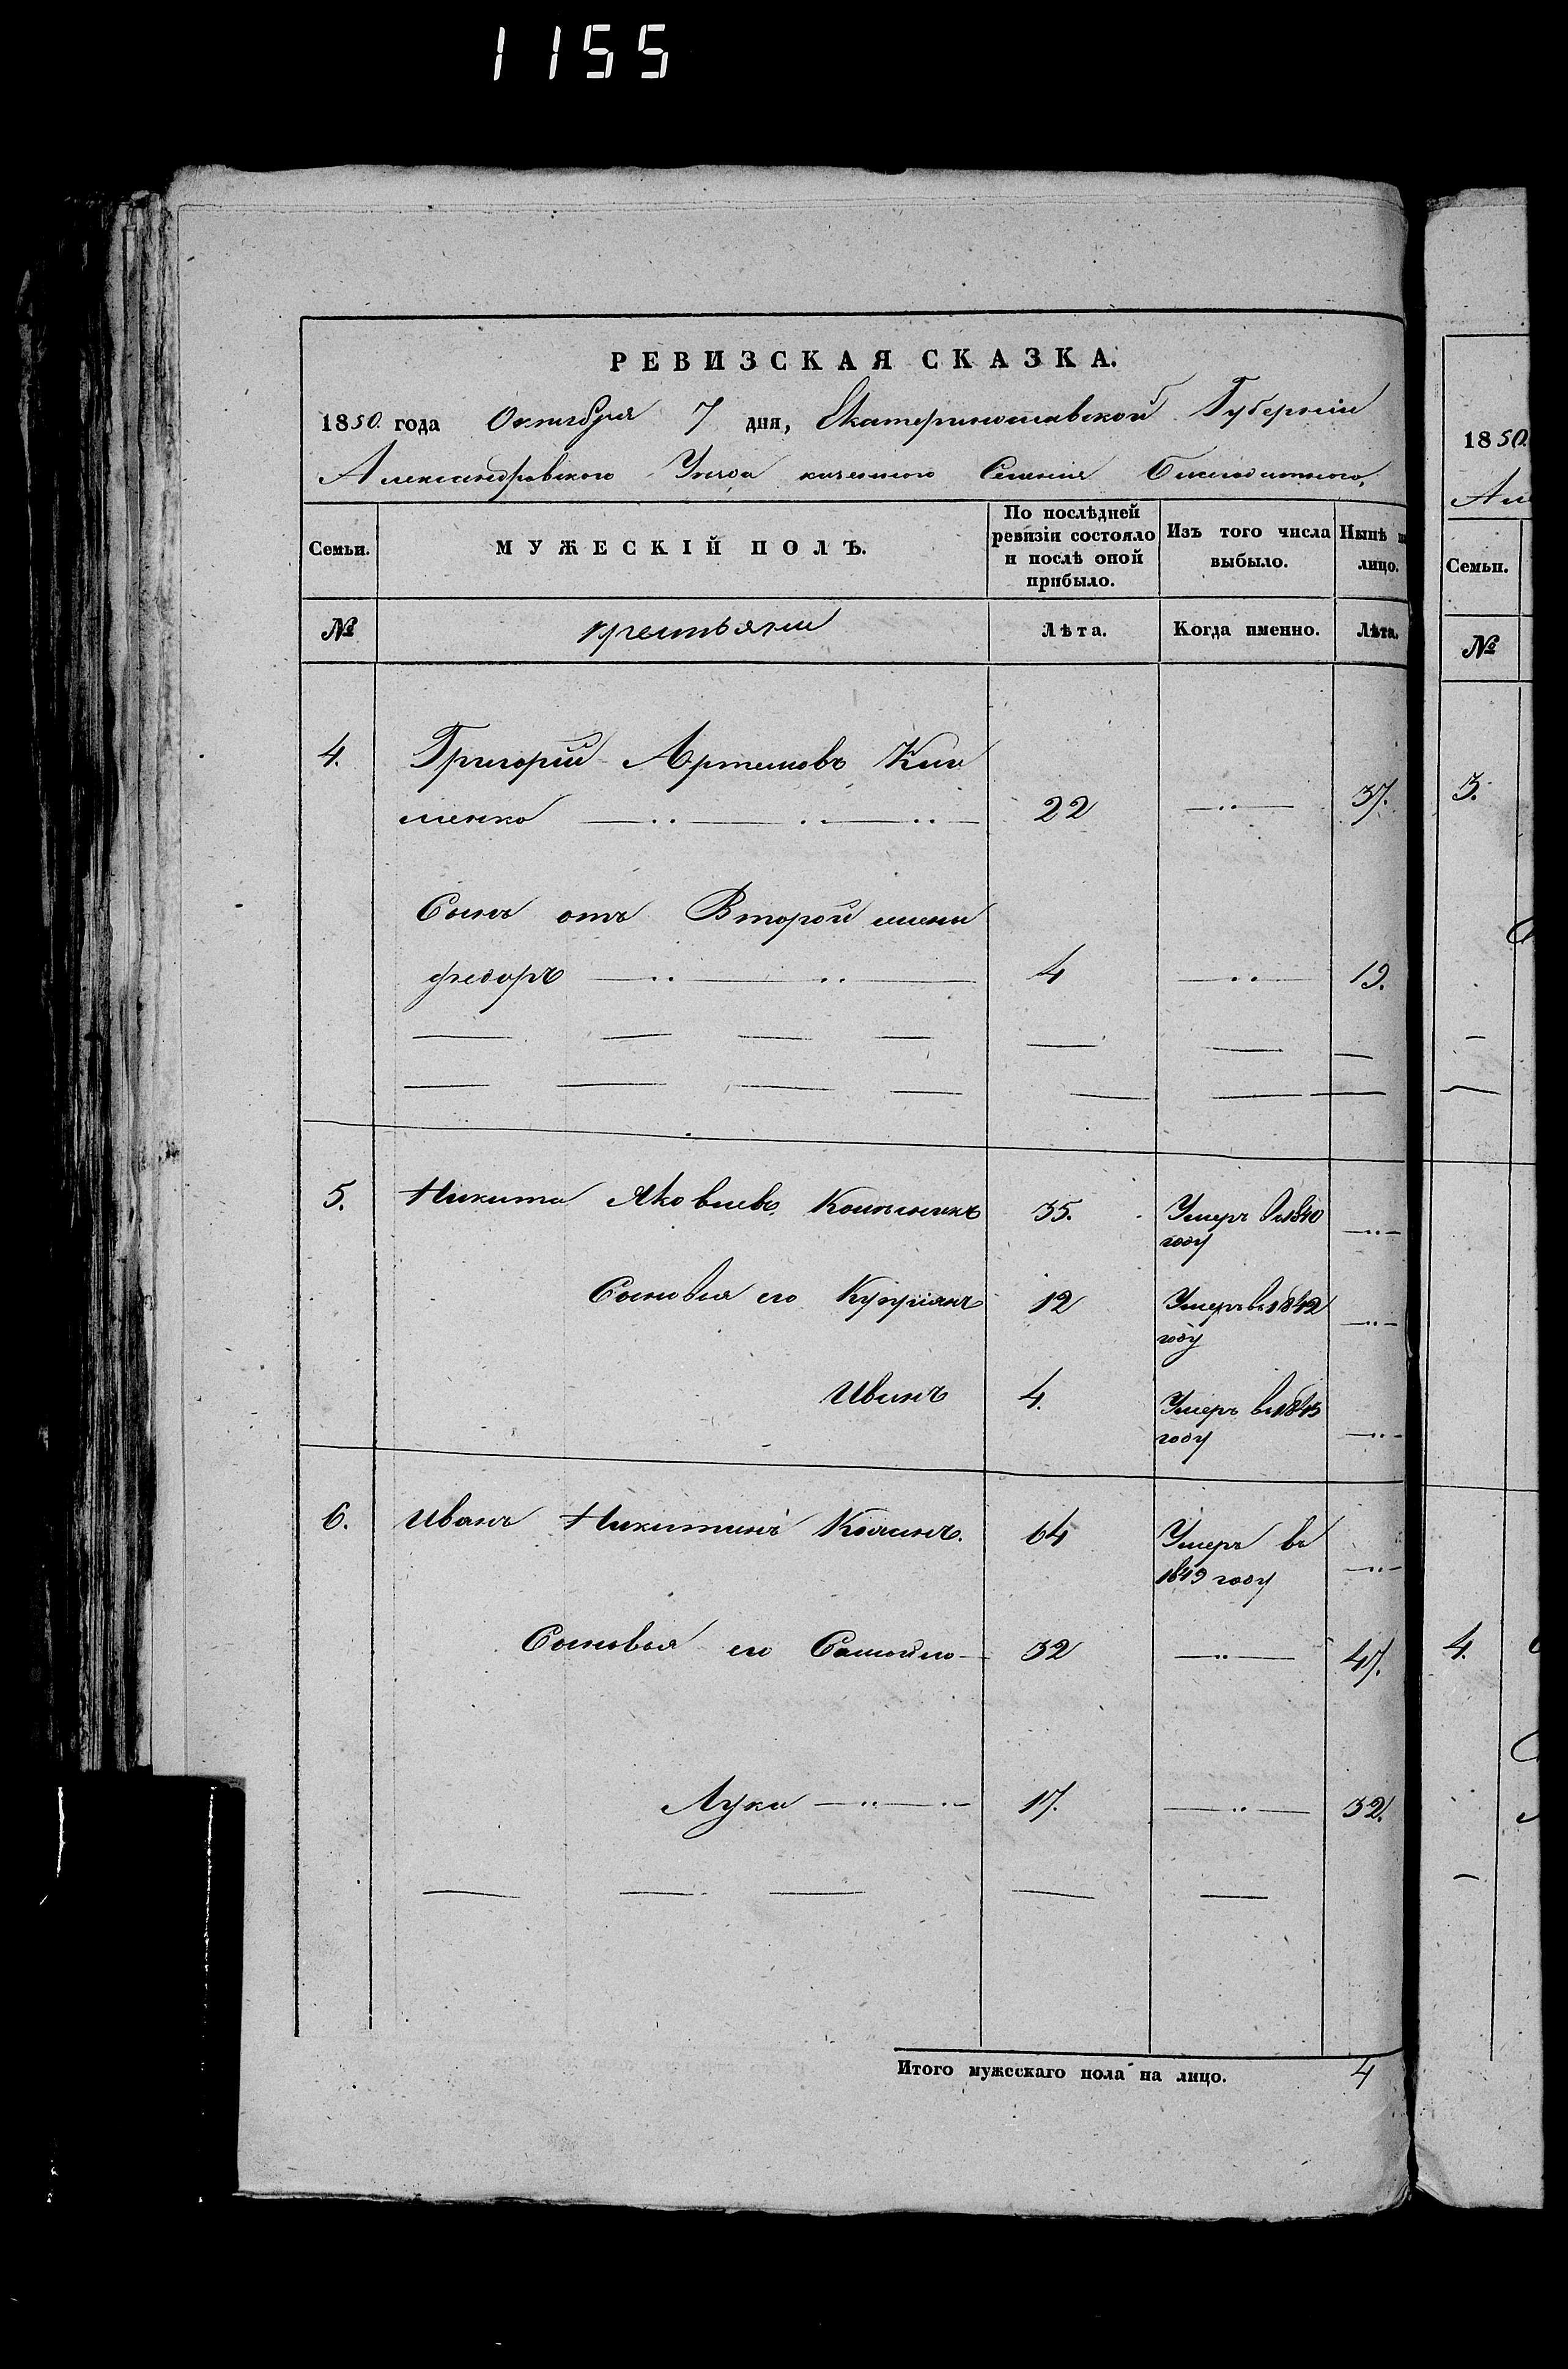 1155
РЕВИЗСКАЯ СКАЗКА.
1850 года Октября 7 дня, Екатеринославской Губернiи
Александровского Уѣзда казенного Селенiя
Семьи. МУЖЕСКIЙ ПОЛЪ. По послѣдней ревизiи состояло и послѣ оной прибыло. Изъ того числа выбыло. Нынѣ н лицо.
№ крестьяне Лѣта. Когда именно. Лѣта.
4. Григорiй Артемовъ Кли
менко 22 37.
Сынъ отъ Второй жены
Федоръ 4 19.
5. Никита Яковлевъ 35. Умеръ въ 1840
году
Сыновья его Купрiянъ 12 Умеръ въ 1842
году
Иванъ 4. Умеръ въ 1845
году
6. Иванъ Никитинъ 64 Умеръ въ
1849 году
Сыновья его Самойло 32 47.
Лука 17. 32.
Итого мужескаго пола на лицо. 4
1850.
Ал
Семьи.
№
3.
4.